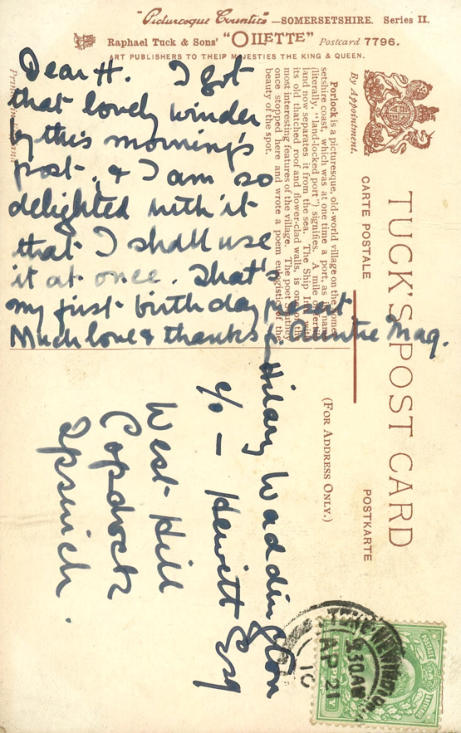 "Picturesque Counties" — SOMERSETSHIRE. Series II.
Raphael Tuck & Sons' "OILETTE" Postcard 7796.
ART PUBLISHERS TO THEIR MAJESTIES THE KING & QUEEN.
Dear H. I got
that lovely winder
by this morning's
post, & I am so
delighted with it
that I shall use
it at once. That's
my first birthday present.
Much love & thanks Auntie Mag.
Porlock is a picturesque, old-world village on the Somer-
setshire coast, which was at one time a port, as its name
(literally, "land-locked port") signifies. A mile of
land now separates it from the sea. The Ship Inn
its old thatched roof and flower-clad walls, is one of the
most interesting features of the village. The poet Southey
once stopped here and wrote a poem of the
beauty of the spot.
By Appointment.
TUCK'S POST CARD
CARTE POSTALE
POSTKARTE
(FOR ADDRESS ONLY.)
Hilary Waddington
c/o — Hewitt Esq
West Hill
Copdock
Ipswich.
9.30 AM
AP 21
10